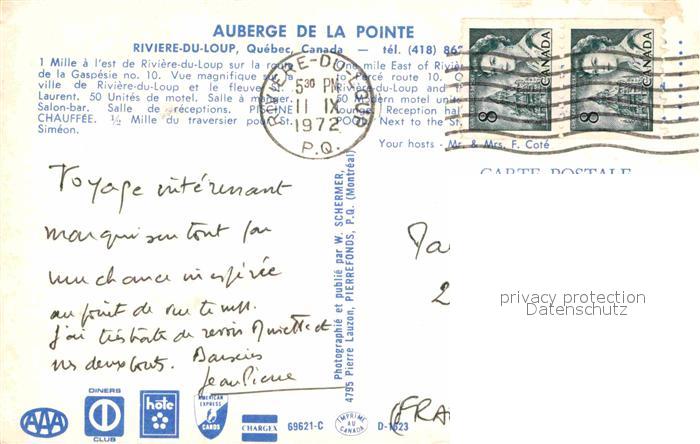 AUBERGE DE LA POINTE
RIVIERE-DU-LOUP, Québec, Canada — tél. (418) 862
1 Mille à l'est de Rivière-du-Loup sur la route
de la Gaspésie no. 10. Vue magnifique sur
ville de Rivière-du-Loup et le fleuve
Laurent. 50 Unités de motel. Salle à manger
Salon-bar. Salle de réceptions. PISCINE
CHAUFFÉE. ¼ Mille du traversier pour St.
Siméon.
One mile East of Riviè
route 10.
Rivière-du-Loup and
50 Modern motel units
Lounge. Reception hall
POOL. Next to the St.
Your hosts - Mr. & Mrs. F. Coté
RIVIERE-DU-LOUP
5 30 PM
11 IX
1972
P.Q.
CANADA 8
CANADA 8
CARTE POSTALE
Voyage intéressant
marqué surtout par
une chance inespérée
au point de vue temps.
J'ai très hâte de revoir et
vos deux bouts. Baisers
Jean Pierre
Photographié et publié par W. SCHERMER,
4795 Pierre Lauzon, PIERREFONDS, P.Q. (Montréal)
2
(FRA
privacy protection
Datenschutz
AAA
DINERS
CLUB
hôte
AMERICAN EXPRESS
CARDS
CHARGEX
69621-C
IMPRIMÉ AU CANADA
D-1323